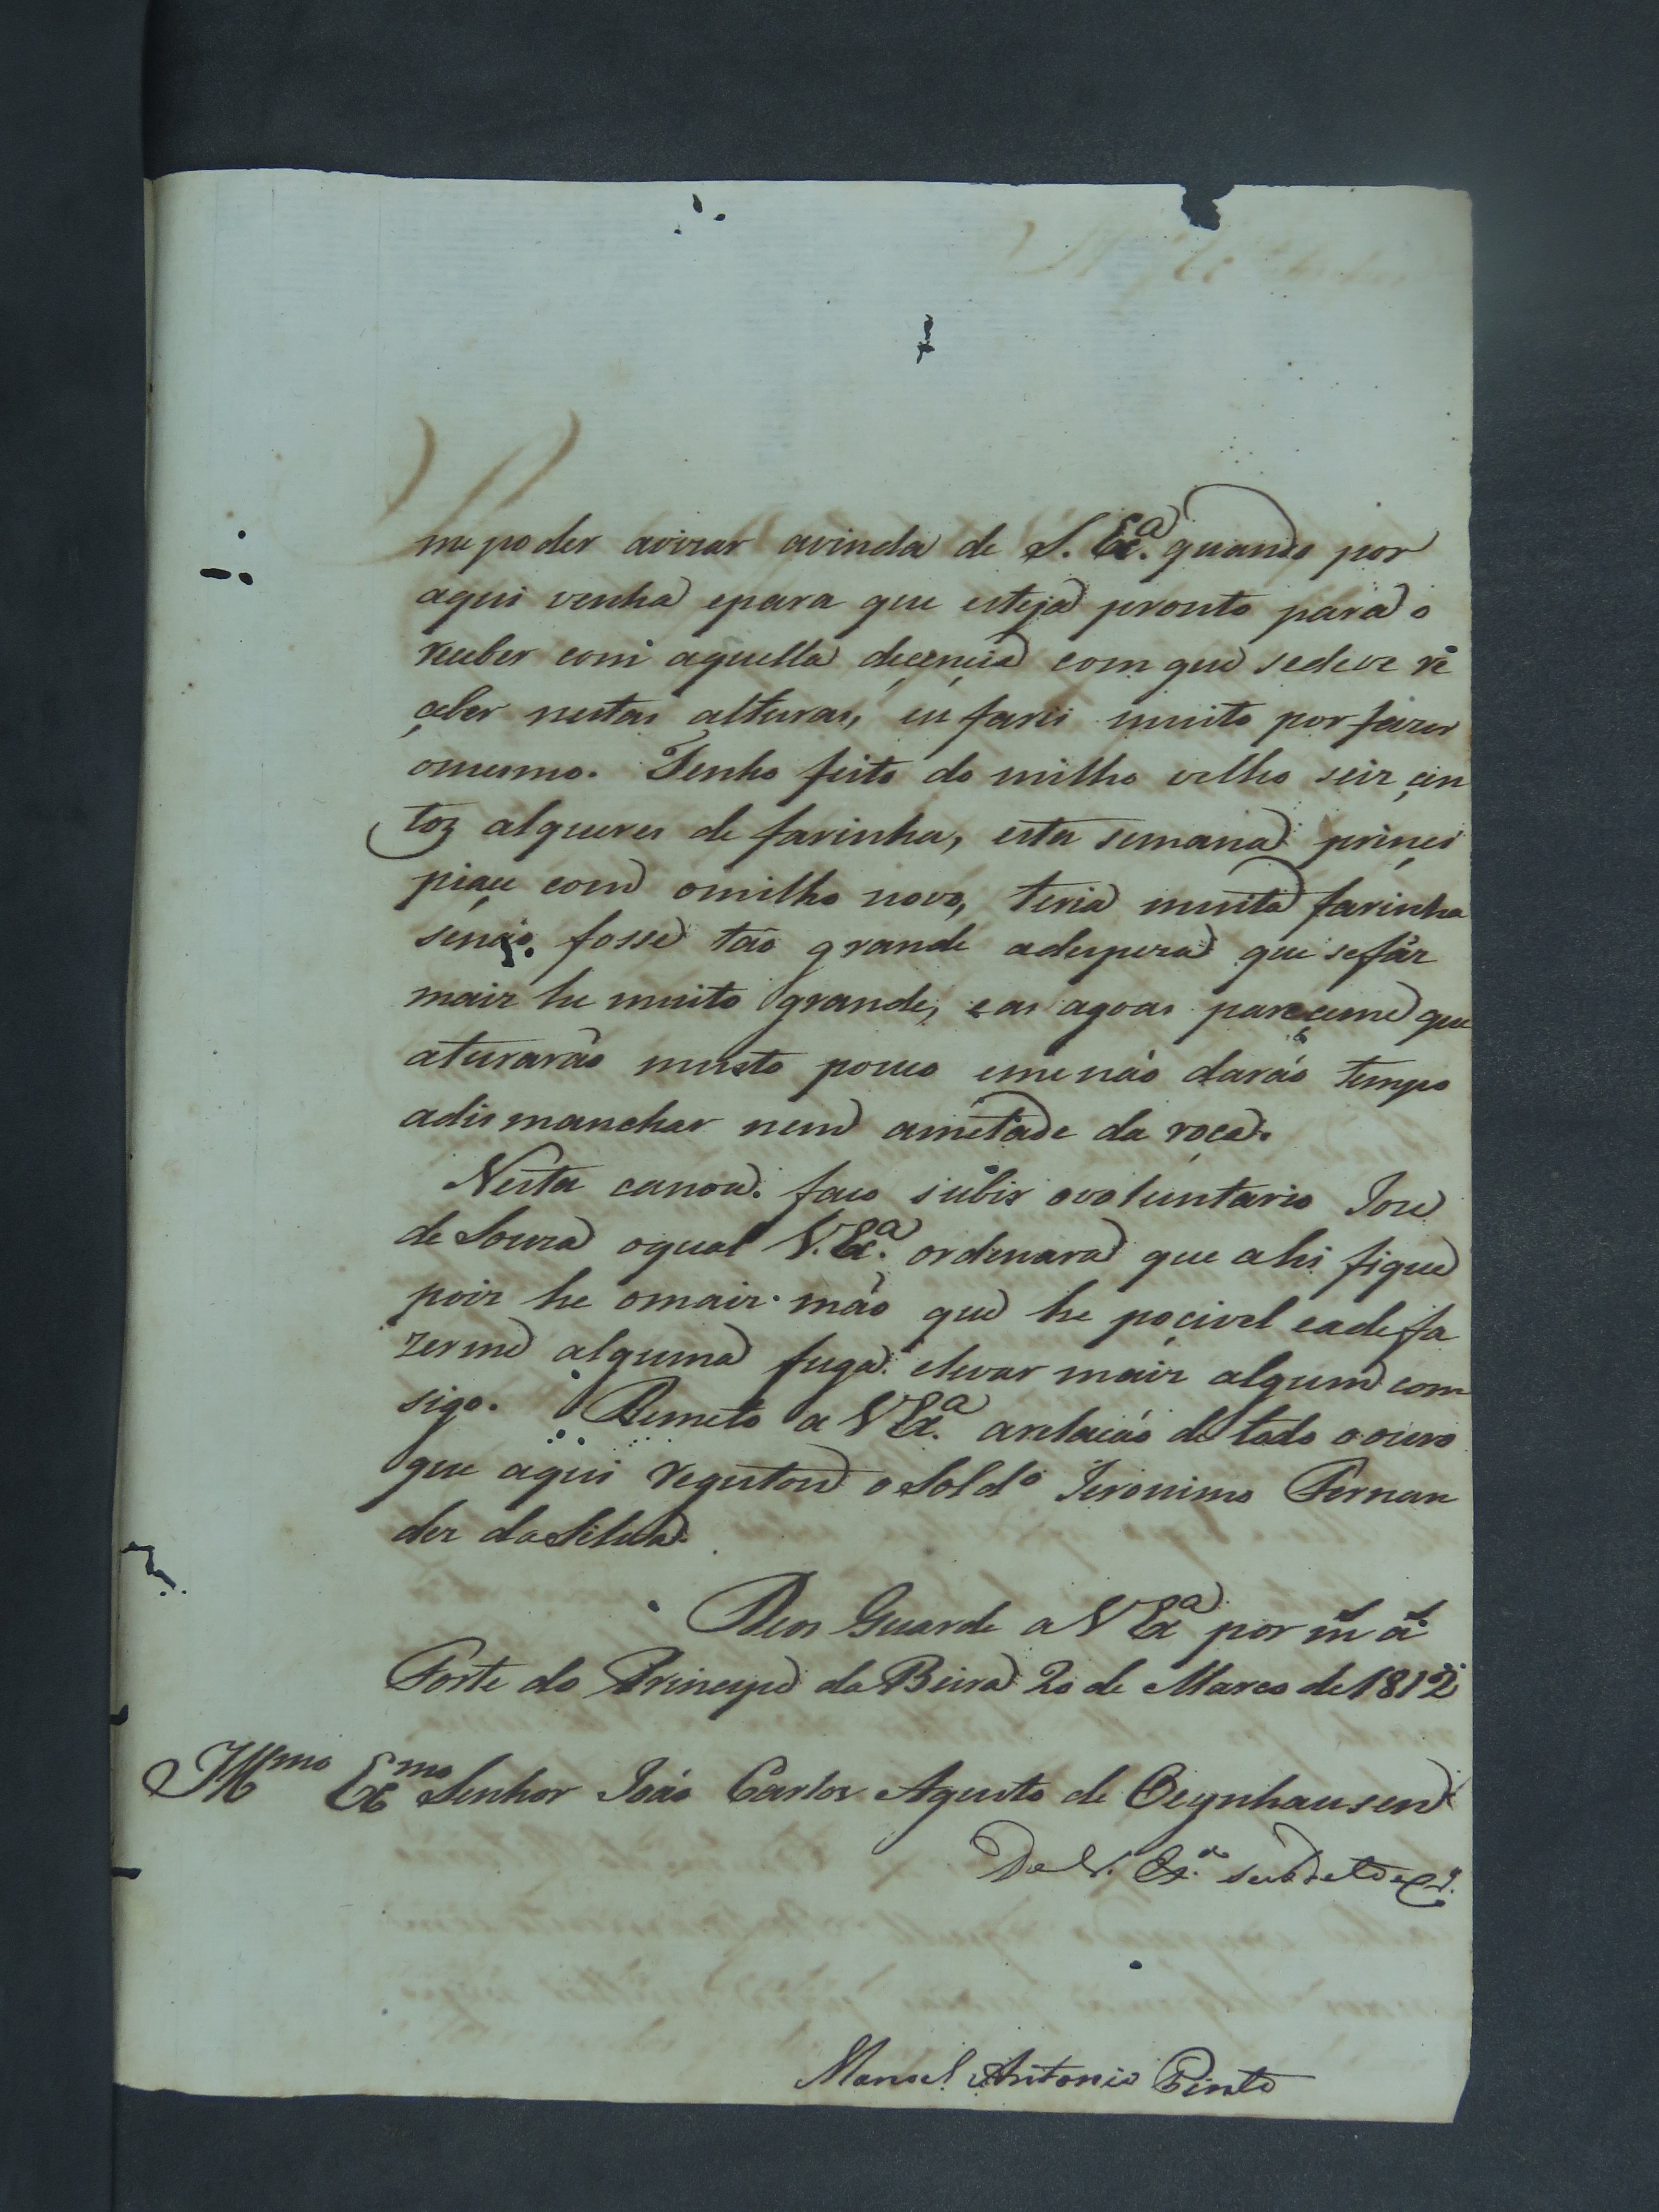 me poder avizar avinda de S. Exª. quando por
aqui venha epara que esteja pronto para o
reuber com aquella deçençia com que sedeve re
çeber nestas alturas, eu farei muito por fazer
omesmo. Tenho feito do milho velho seiz çen
toz alqueres de farinha, esta semana prinçi
piçei com omilho novo, teria muita farinha
senão fosse tão grande adespeza que sefáz
maiz he muito grande, eas agoas pareçeme que
aturarão muito pouco emenão darão tempo
adismanchar nem ametade da roça.
Nesta canoa faco subir ovoluntario Joze
de Souza oqual V. Exª. ordenara que ahi fique
poiz he omaiz máo que he poçivel eadefa
zerme alguma fuga elevar maiz algum com
sigo. Remeto a V Exª. arelacáo de todo o ouro
que aqui registou o Soldº Jeronimo Fernan
dez da Silva.
Deos Guarde a V Exª por m.s a.s
Forte do Principe da Beira 20 de Marco de 1812
Illmo Exmo Senhor João Carlos Agusto de Oeynhausen
De V. Exª.
Manoel Antonio Pinto